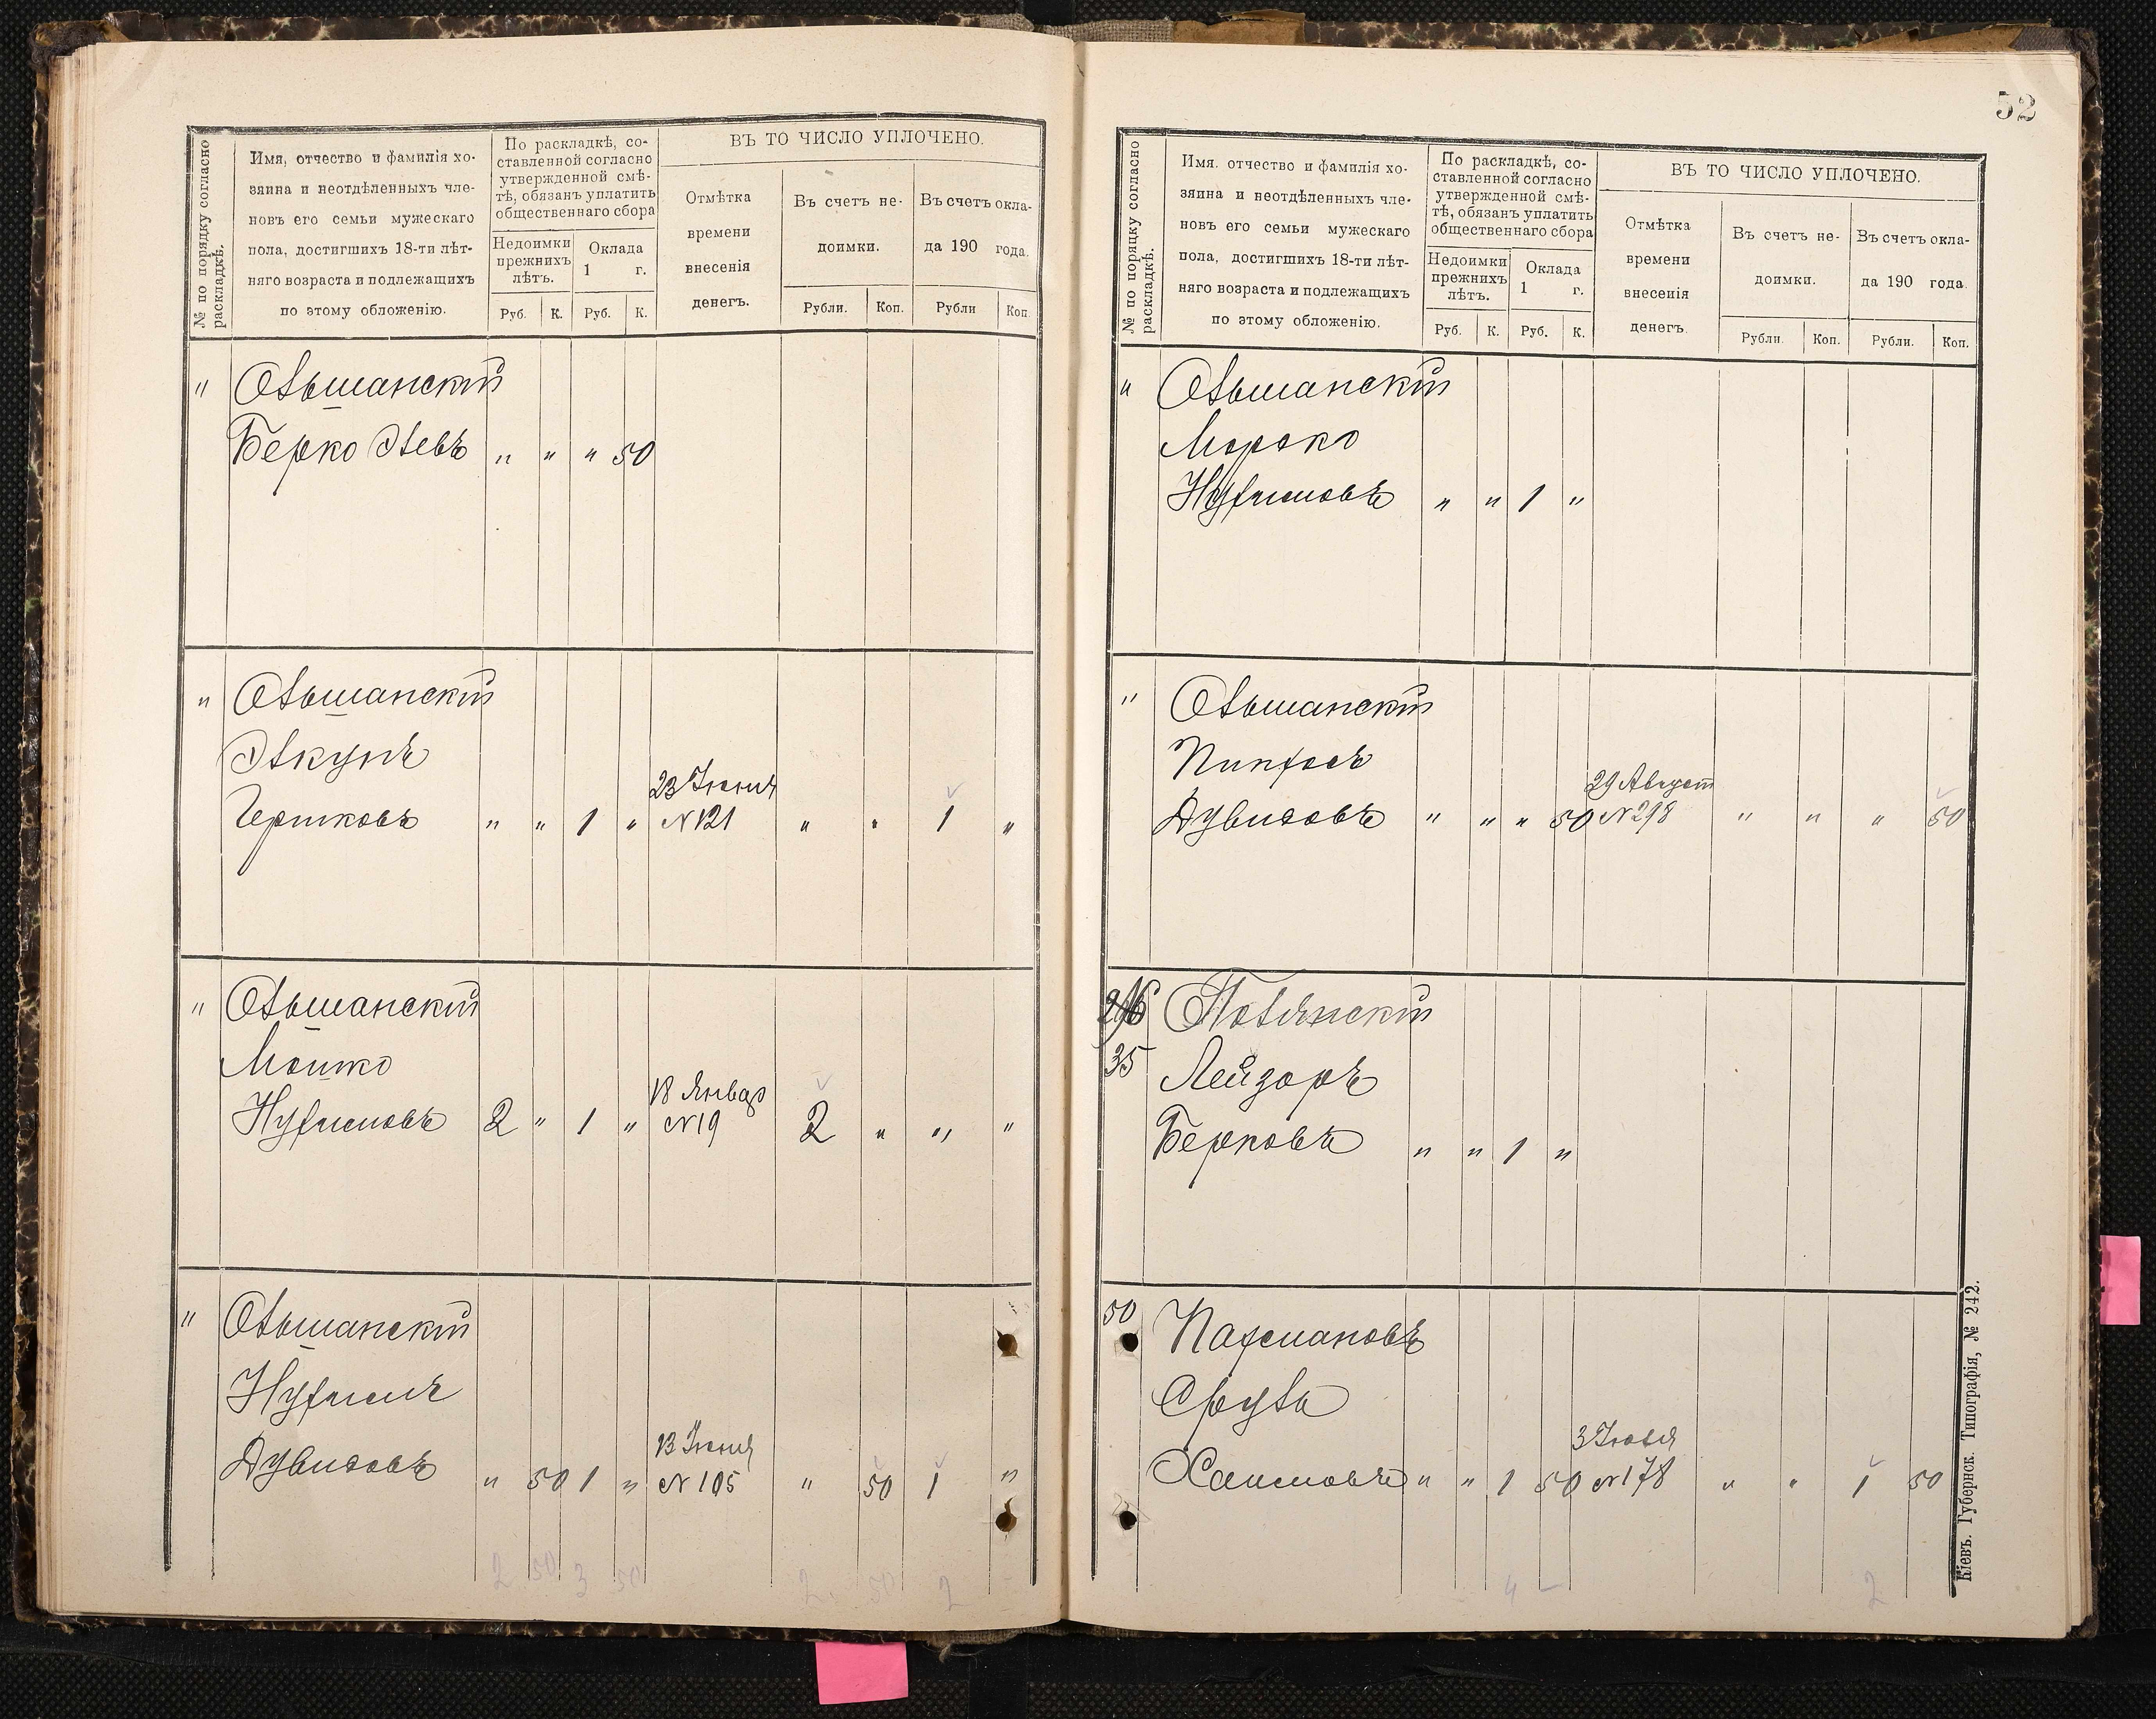 № по порядку согласно раскладкѣ.
Имя, отчество и фамилія хо-
зяина и неотдѣленныхъ чле-
новъ его семьи мужескаго
пола, достигшихъ 18-ти лѣт-
няго возраста и подлежащихъ
по этому обложенію.
По раскладкѣ, со-
ставленной согласно
утвержденной смѣ-
тѣ, обязанъ уплатить
общественнаго сбора
Недоимки
прежнихъ
лѣтъ.
Оклада
1 г.
Руб. К. Руб. К.
ВЪ ТО ЧИСЛО УПЛОЧЕНО.
Отмѣтка
времени
внесенія
денегъ.
Въ счетъ не-
доимки.
Въ счетъ окла-
да 190 года.
Рубли. Коп. Рубли Коп.
" Ольшанскій
Берко Левъ " " " 50
" Ольшанскій
Янкуль
23 Іюня
Гершковъ " " 1 " №121 " " 1 "
" Ольшанскій
Мошко
18 Январ
Нухимовъ 2 " 1 " №19 2 " " "
" Ольшанскій
Нухимъ
13 Іюня
Дувидовъ " 50 1 " №105 " 50 1 "
2 50 3 50 2. 50 2
52
№ по порядку согласно раскладкѣ.
Имя. отчество и фамилія хо-
зяина и неотдѣленныхъ чле-
новъ его семьи мужескаго
пола, достигшихъ 18-ти лѣт-
няго возраста и подлежащихъ
по этому обложенію.
По раскладкѣ, со-
ставленной согласно
утвержденной смѣ-
тѣ, обязанъ уплатить
общественнаго сбора
Недоимки
прежнихъ
лѣтъ.
Оклада
1 г.
Руб. К. Руб. К.
ВЪ ТО ЧИСЛО УПЛОЧЕНО.
Отмѣтка
времени
внесенія
денегъ.
Въ счетъ не-
доимки.
Въ счетъ окла-
да 190 года.
Рубли. Коп. Рубли. Коп.
" Ольшанскій
Мордко
Нухимовъ " " 1 "
" Ольшанскій
Пинхосъ
29 Август
Дувидовъ " " " 50 №298 " " " 50
Полянскій
35 Лейзоръ
Берковъ " " 1 "
50 Пахмановъ
Сруль
3 Іюля
Хаимовъ " " 1 50 №178 " " 1 50
4 – 2
Кіевъ. Губернск. Типографія, № 242.